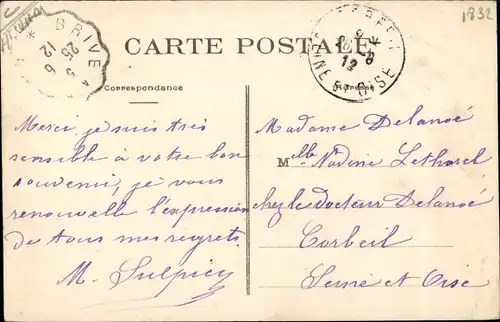 1832
BRIVE
25 - 3
12
CARTE POSTALE
SEINE ET OISE
Correspondance
Adresse
Merci, je suis très
sensible à votre bon
souvenir, je vous
renouvelle l'expression
de tous mes regrets.
M. Sulpicy
Madame Delanoé
Melle Nadine Letharel
chez le Docteur Delanoé
Corbeil
Seine et Oise